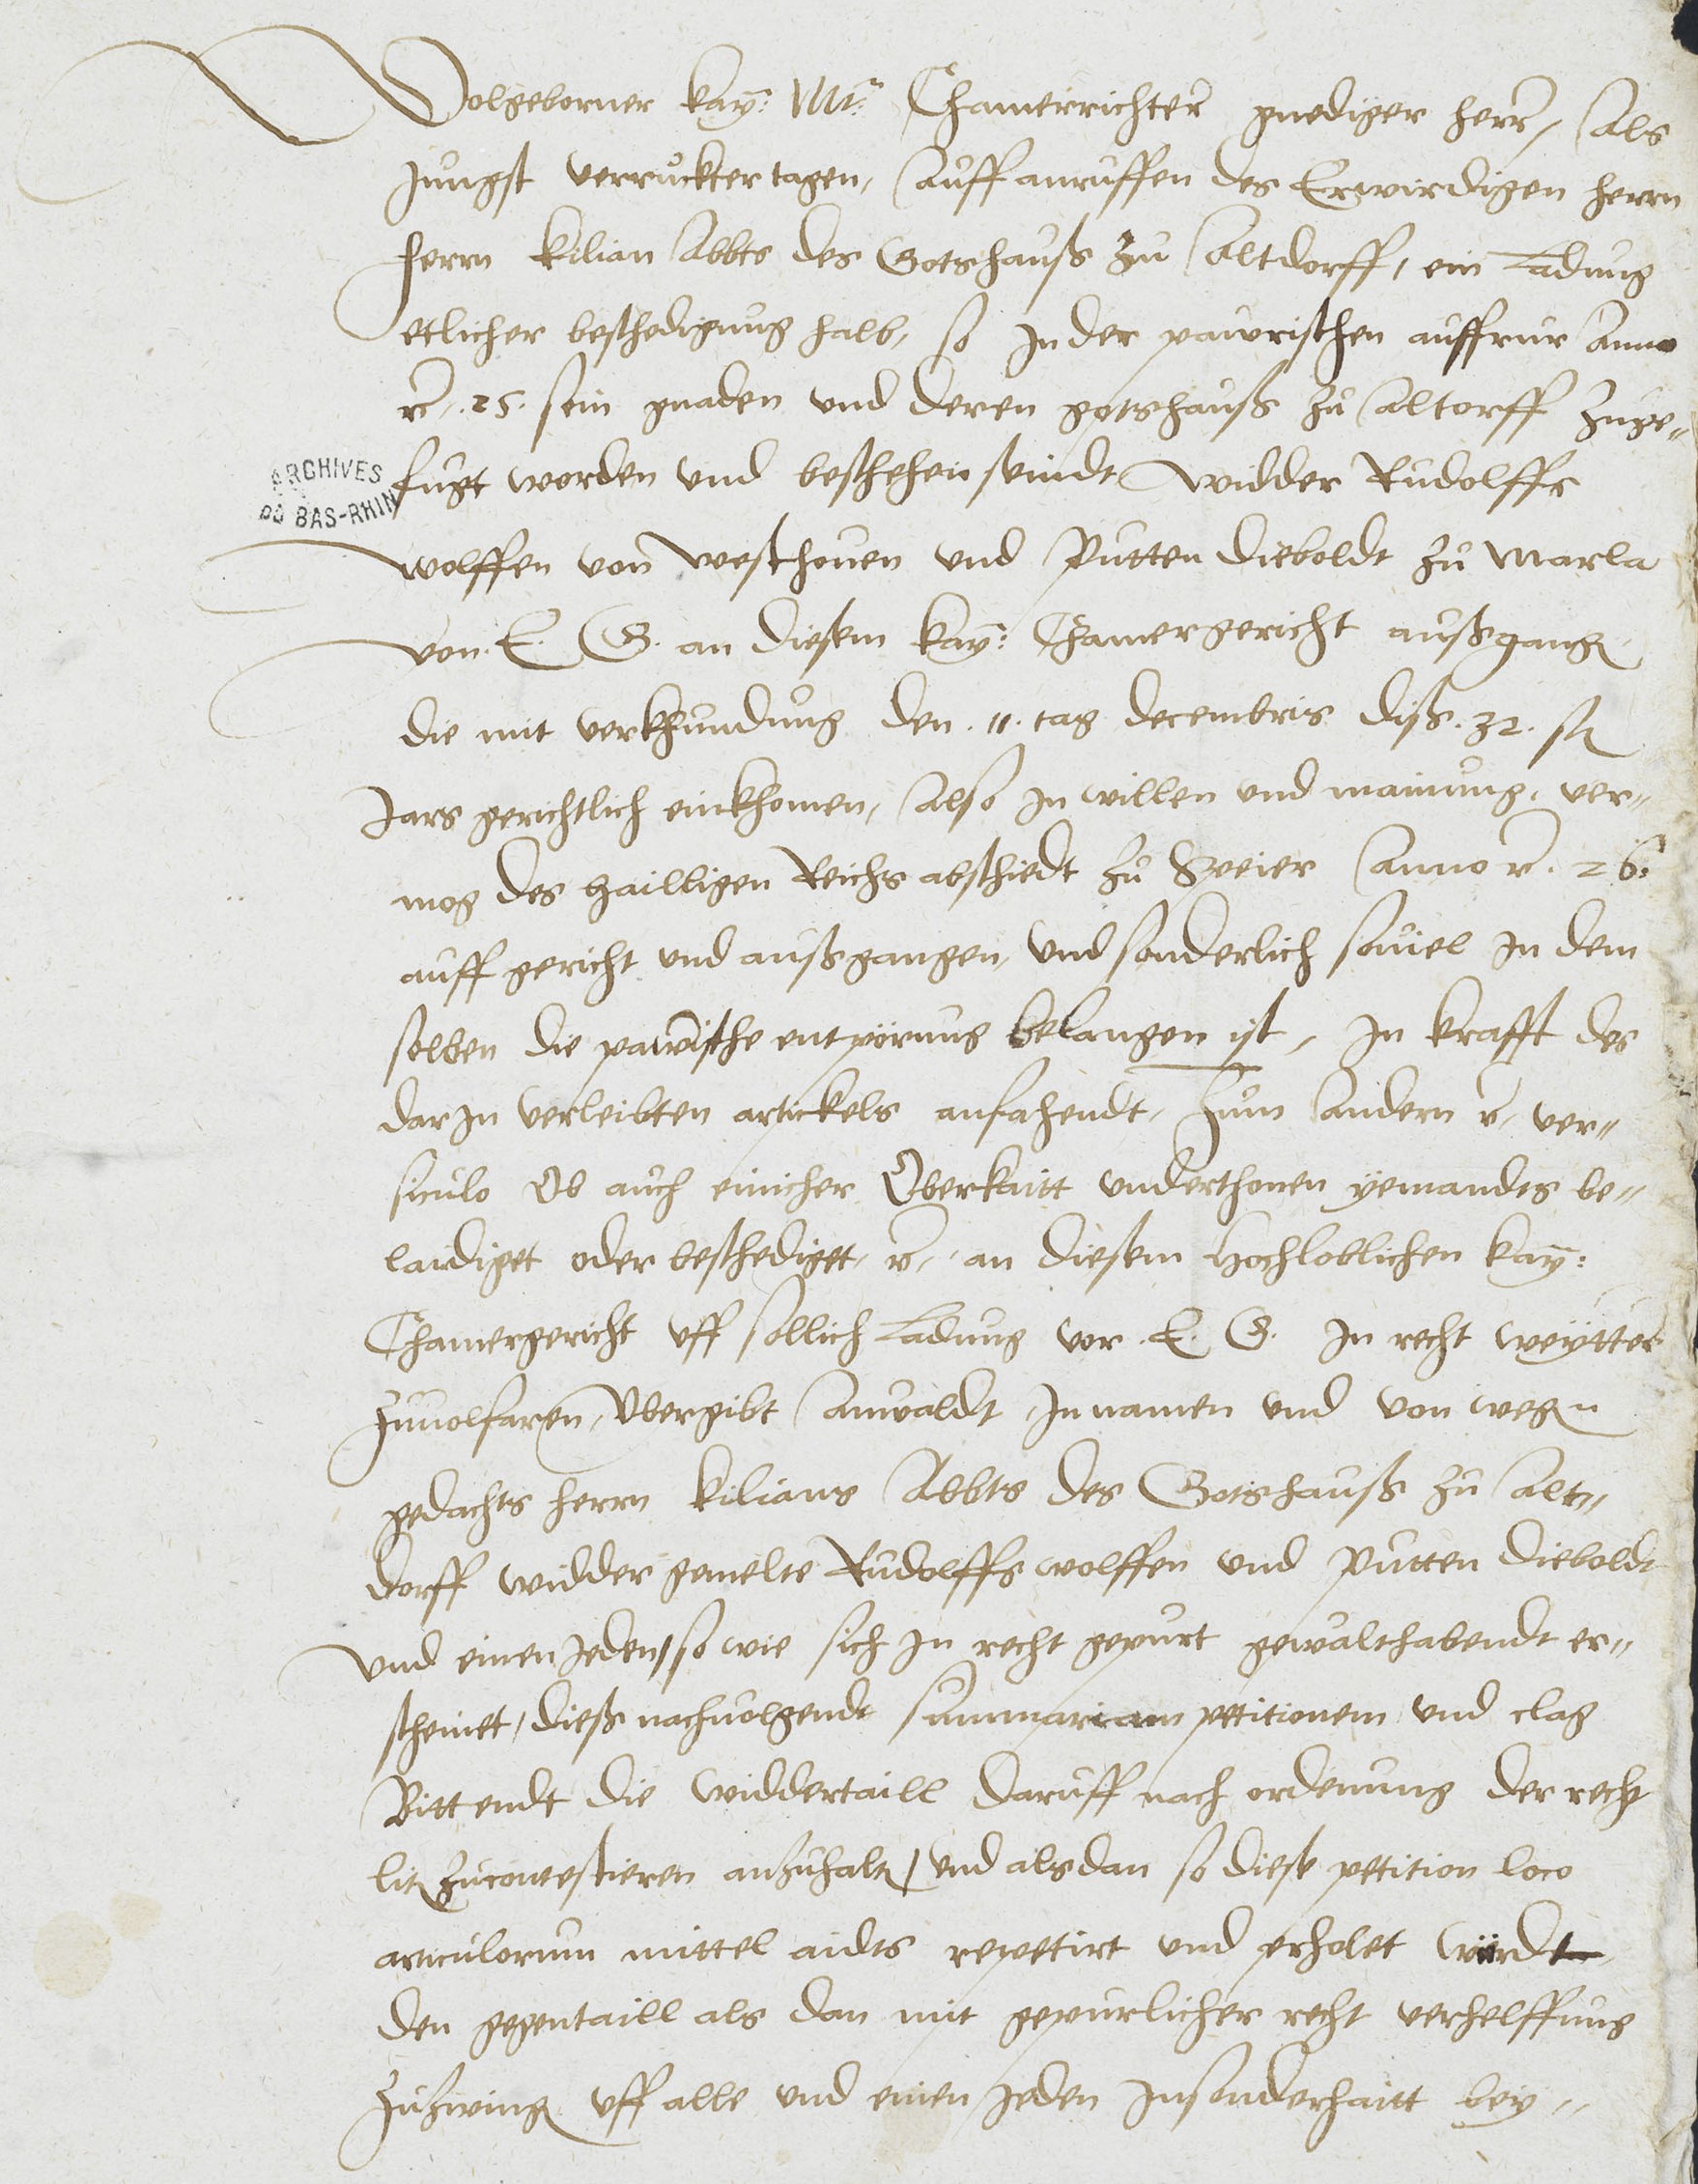 Wolgeborner kay: Mt: Chamerrichter gnediger herr, Als
jungst verruckter tagen, Auff anruffen des Erwirdigen herrn
herrn Kilian Abbts des Gotshauß zu Altdorff, ein Ladung
ettlicher beschedigung halb, so in der paurischen auffrur Anno
rc. 25. sein gnaden und deren gotshauß zu Altorff zuge„
ARCHIVES
DU BAS-RHIN
fugt worden und beschehen seindt widder Rudolffs
wolffen von Westhouen und Putten Dieboldt zu Marla
von E. G. an diesem kay: Chamergericht außgang
die mit verkhundung den .11. tag decembris diß .32. st
Jars gerichtlich einkhomen, Also in willen und mainung, ver„
mog des hailligen Reichs abschiedt zu Speier Anno rc. 26.
auff gericht und außgangen, und sonderlich souiel in dem
selben die paurische entpörung belangen ist, In krafft des
darin verleibten artickels anfahendt, Zum Andern rc, ver„
siculo Ob auch einicher Oberkaitt underthonen yemandts be„
laidiget oder beschediget, rc, an diesem Hochloblichen kay:
Chamergericht uff sollich Ladung vor .E. G. In recht weytter
zuuolfaren, Ubergibt Anwaldt, In namen und von wegn
gedachts herrn Kilians Abbts des Gotshauß zu Alt„
dorff widder gemelte Rudolffs wolffen und Putten Dieboldt
und einen jeden, so wie sich in recht gepurt gewalthabendt er„
scheinet, dieß nachuolgendt summariam petitionem und clag
Bittendt die widdertaill daruff nach ordenung der recht
lit zucontestieren anzuhalt, und alsdan so diese petition loco
articulorum mittel aidts repetirt und erholet würdt
den gegentaill als dan mit gepurlicher recht verhelffung
zuzwing uff alle und einen jeden Insonderhaitt bey„